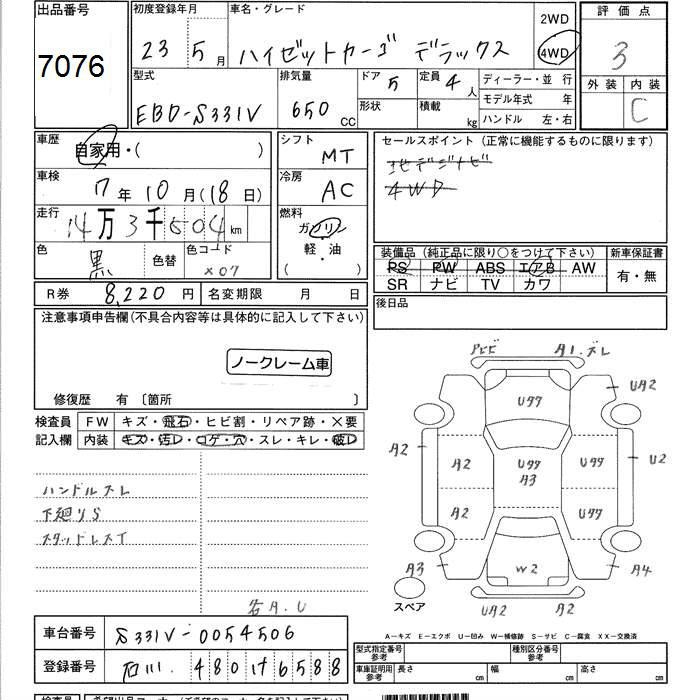 出品番号
7076
初度登録年月
23 5月
車名・グレード
ハイゼットカーゴ デラックス
2WD
4WD
評価点
3
外装 内装
C
型式
EBD-S331V
排気量
650 CC
ドア 5
定員 4人
形状
積載 kg
ディーラー・並行
モデル年式 年
ハンドル 左・右
車歴
自家用・( )
車検
7年10月(18日)
走行
14万3千504km
色
黒
色替
色コード
X07
シフト
MT
冷房
AC
燃料
ガソリン
軽・油
( )
セールスポイント (正常に機能するものに限ります)
地デジナビ
4WD
装備品 (純正品に限り○をつけて下さい)
PS PW ABS エアB AW
SR ナビ TV カワ
新車保証書
有・無
R券 8,220円
名変期限 月 日
後日品
注意事項申告欄(不具合内容等は具体的に記入して下さい)
ノークレーム車
修復歴 有 〔箇所 〕
検査員記入欄
FW キズ・飛石・ヒビ割・リペア跡・×要
内装 キズ・汚レ・コゲ・穴・スレ・キレ・破レ
ハンドルスレ
下廻りS
スタッドレスT
各A.U
A1.ズレ
UA2
Uタワ
A2
A2
Uタワ
Uタワ
U2
A3
A2
Uタワ
A3
W2
A4
UA2
A2
スペア
A-キズ E-エクボ U-凹み W-補修跡 S-サビ C-腐食 XX-交換済
車台番号
S331V-0054506
登録番号
石川 480 け 6588
型式指定番号 参考
種別区分番号 参考
車庫証明用 参考
長さ cm
幅 cm
高さ cm